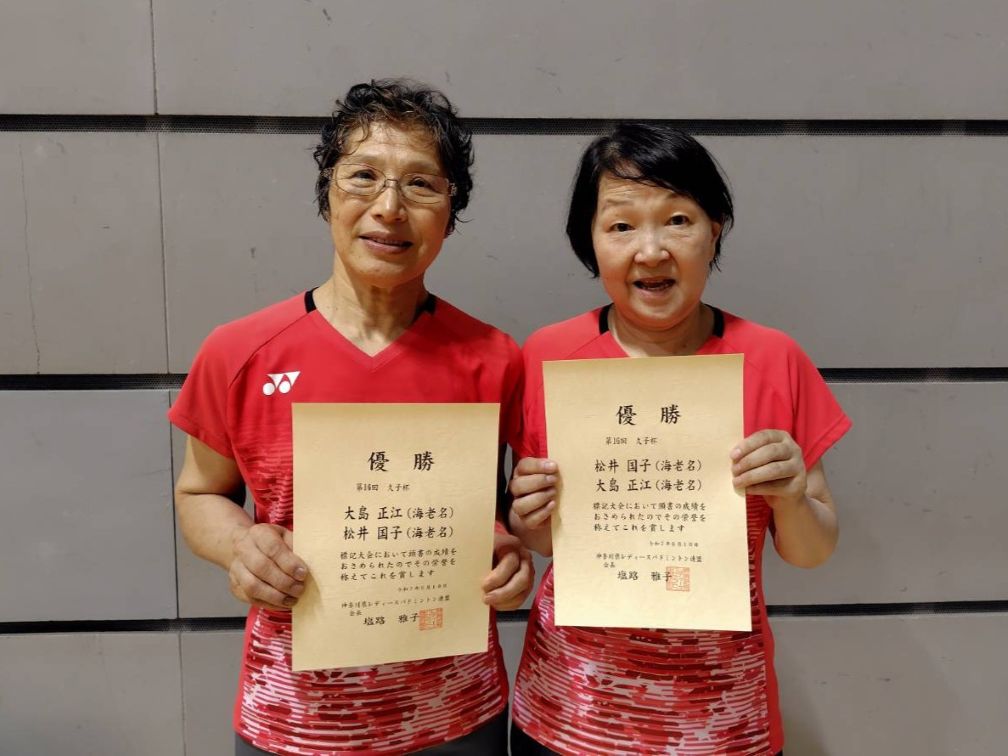 優勝
第16回 久子杯
大島 正江(海老名)
松井 国子(海老名)
標記大会において頭書の成績を
おさめられたのでその栄誉を
称えてこれを賞します
神奈川県レディースバドミントン連盟
会長
塩路 雅子
優勝
第16回 久子杯
松井 国子(海老名)
大島 正江(海老名)
標記大会において頭書の成績を
おさめられたのでその栄誉を
称えてこれを賞します
神奈川県レディースバドミントン連盟
会長
塩路 雅子